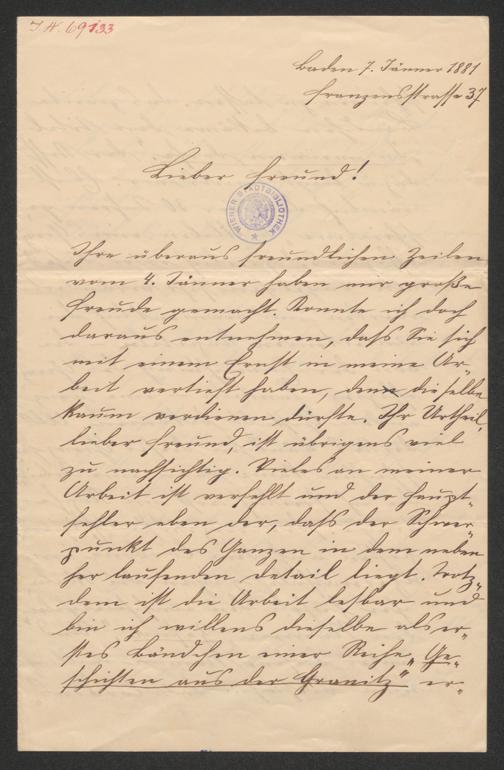 J.N. 69133
Baden 7. Jänner 1881
Franzensstrasse 37
Lieber Freund!
WIENER STADTBIBLIOTHEK
Ihre überaus freundlichen Zeilen
vom 4. Jänner haben mir große
Freude gemacht. Konnte ich doch
daraus entnehmen, dass Sie sich
mit einem Ernst in meine Ar-
beit vertieft haben, den dieselbe
kaum verdienen dürfte. Ihr Urtheil,
lieber Freund, ist übrigens viel
zu nachsichtig. Vieles an meiner
Arbeit ist verfehlt und der Haupt-
fehler eben der, dass der Schwer-
punkt des Ganzen in dem neben
her laufenden Detail liegt. Trotz-
dem ist die Arbeit lesbar und
bin ich willens dieselbe als er-
stes Bändchen einer Reihe „Ge-
schichten aus der Granitz" er-